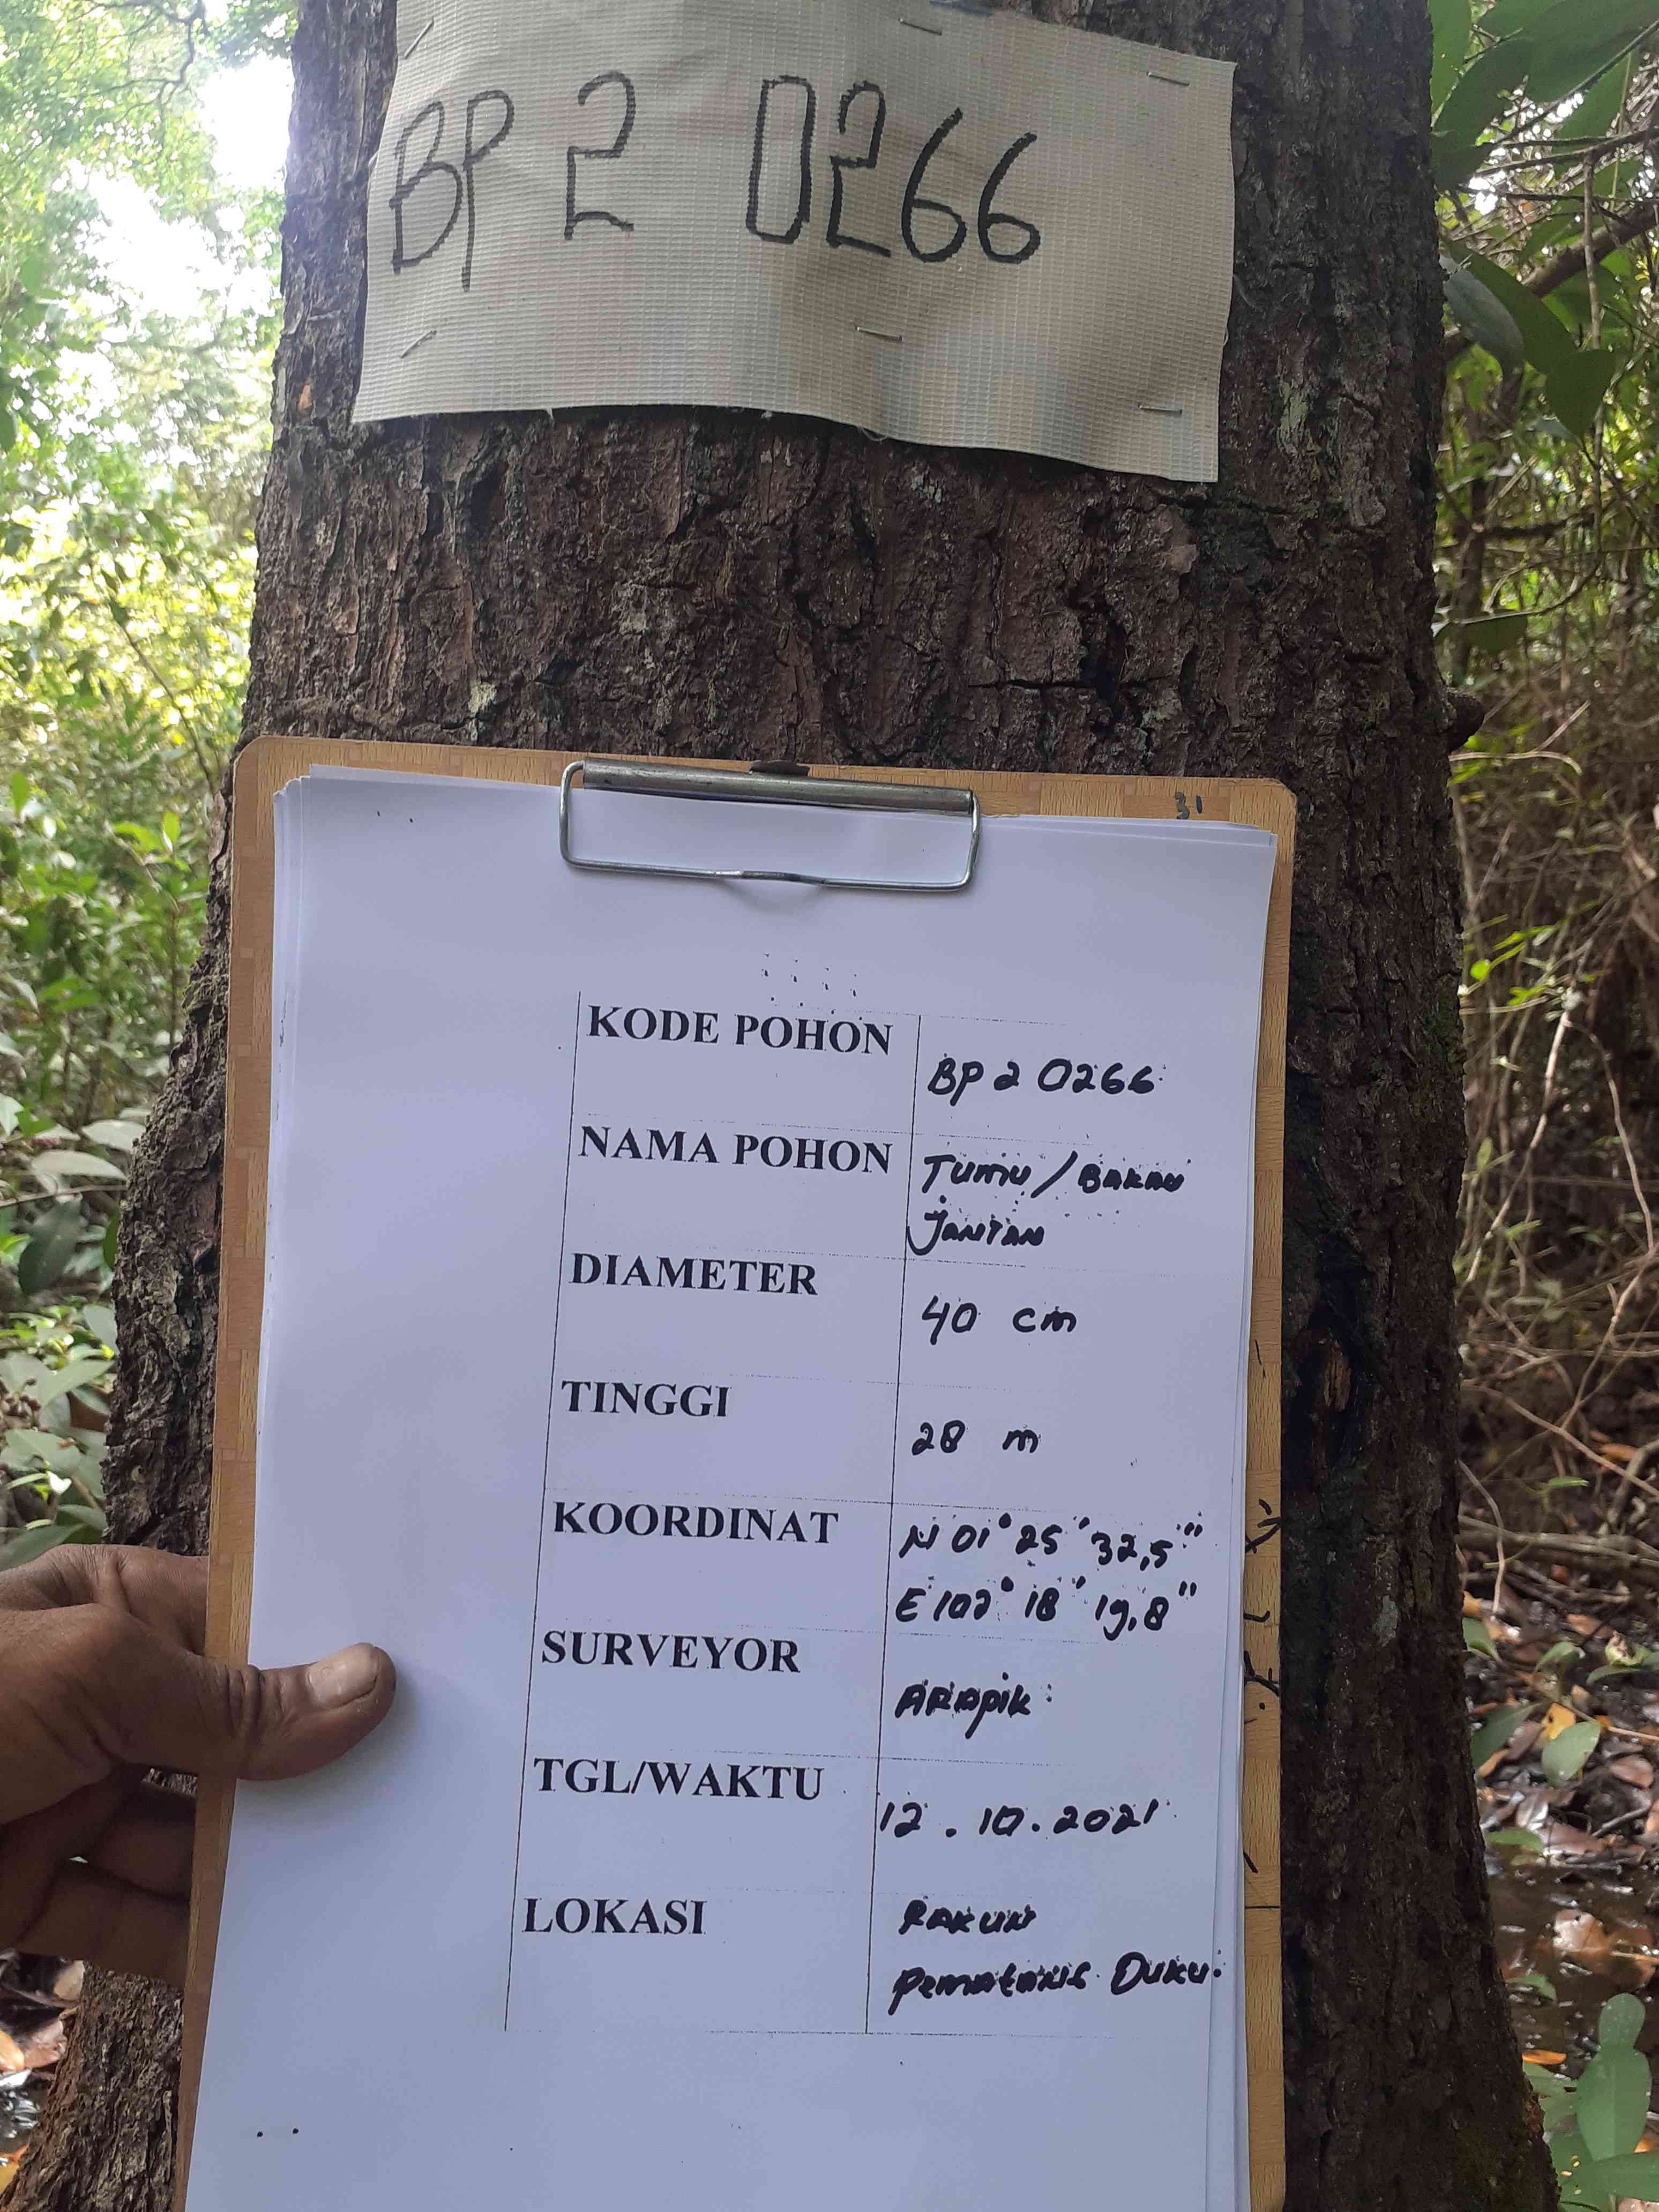 BP 2 0266
31
KODE POHON
BP 2 0266
NAMA POHON
Tumu / BAKAU
JANTAN
DIAMETER
40 cm
TINGGI
28 m
KOORDINAT
N 01° 25' 32,5"
E 102° 18' 19,8"
SURVEYOR
ARAPIK
TGL/WAKTU
12.10.2021
LOKASI
RAKUN
Pematang Duku